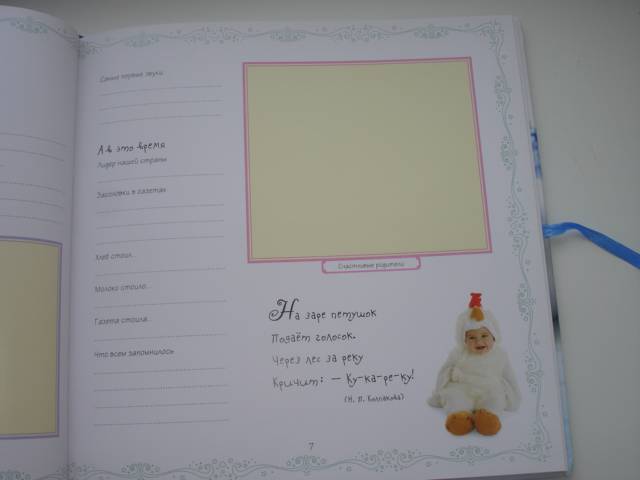 Самые первые звуки
А в это время
Лидер нашей страны
Заголовки в газетах
Хлеб стоил...
Молоко стоило...
Газета стоила...
Что всем запомнилось
Счастливые родители
На заре петушок
Подаёт голосок.
Через лес за реку
Кричит: — Ку-ка-ре-ку!
(Н. П. Колпакова)
7